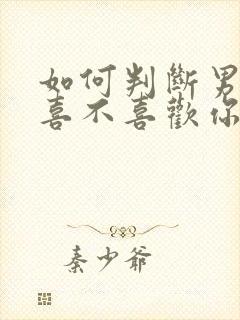 如何判斷男
喜不喜歡你
秦少爺